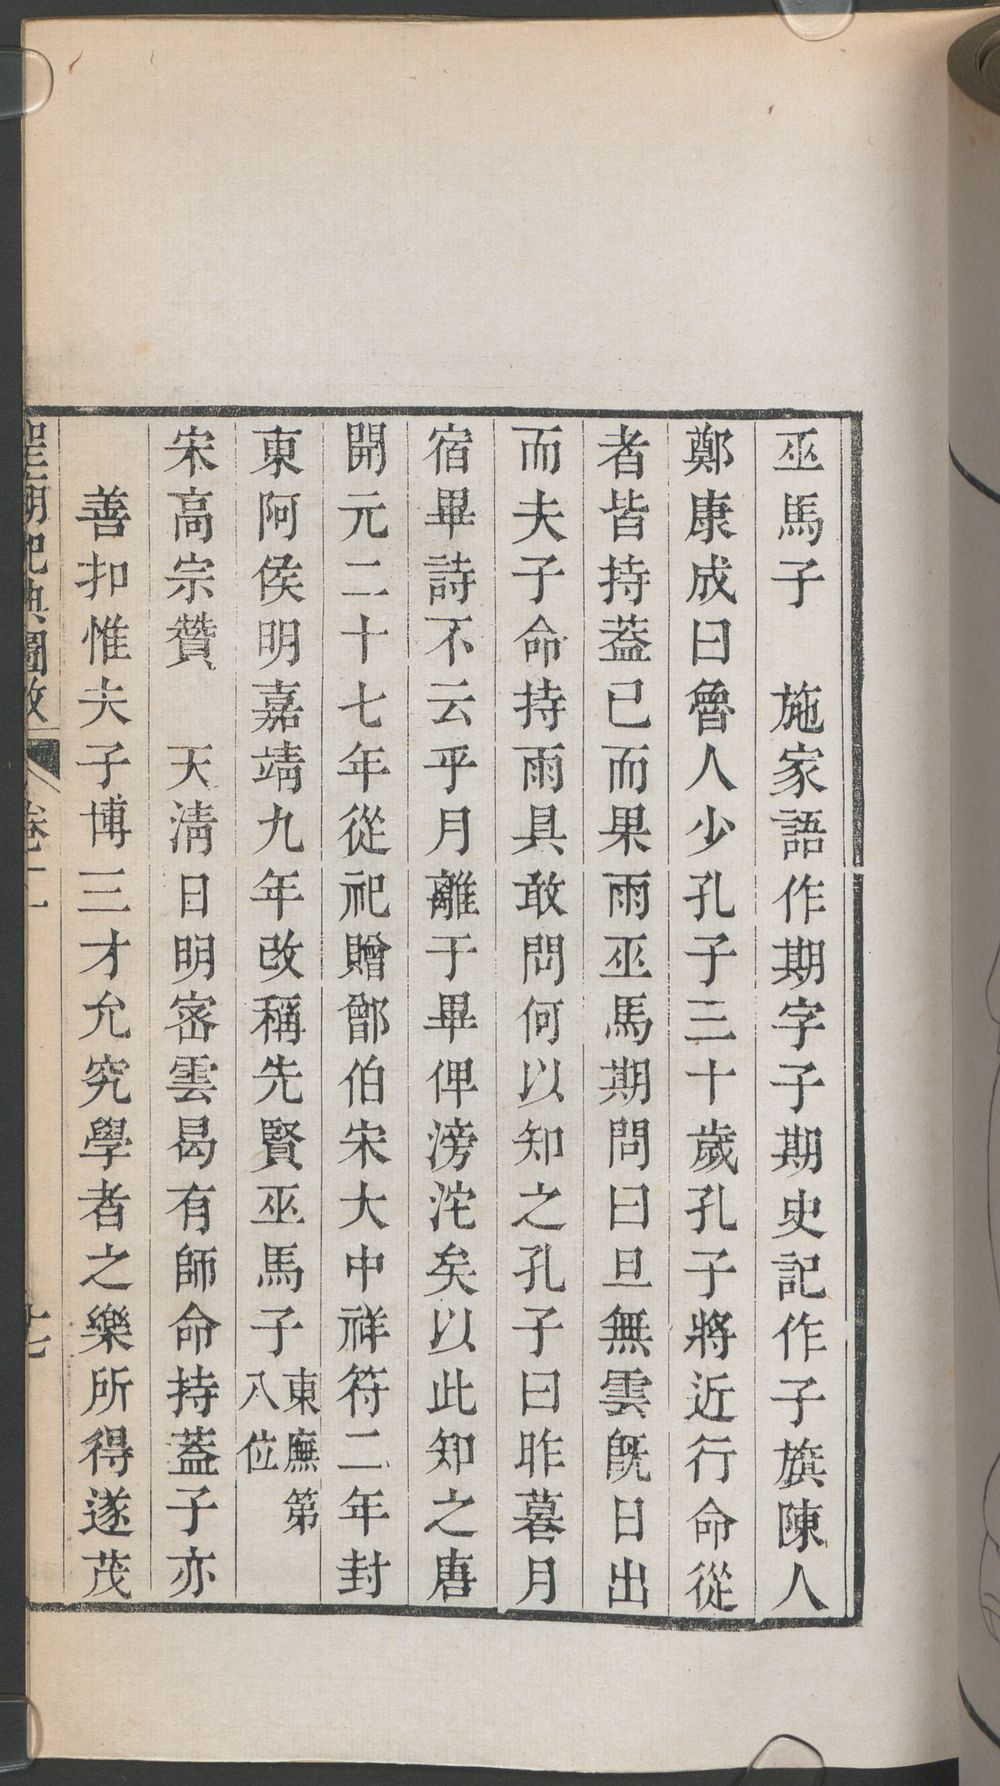 巫馬子　施家語作期字子期史記作子旗陳人
鄭康成曰魯人少孔子三十歲孔子將近行命從
者皆持蓋已而果雨巫馬期問曰旦無雲旣日出
而夫子命持雨具敢問何以知之孔子曰昨暮月
宿畢詩不云乎月離于畢俾滂沱矣以此知之唐
開元二十七年從祀贈鄫伯宋大中祥符二年封
東阿侯明嘉靖九年改稱先賢巫馬子東廡第八位
宋高宗贊　天清日明密雲曷有師命持蓋子亦
善扣惟夫子博三才允究學者之樂所得遂茂
聖朝祀典圖攷　卷二　十七